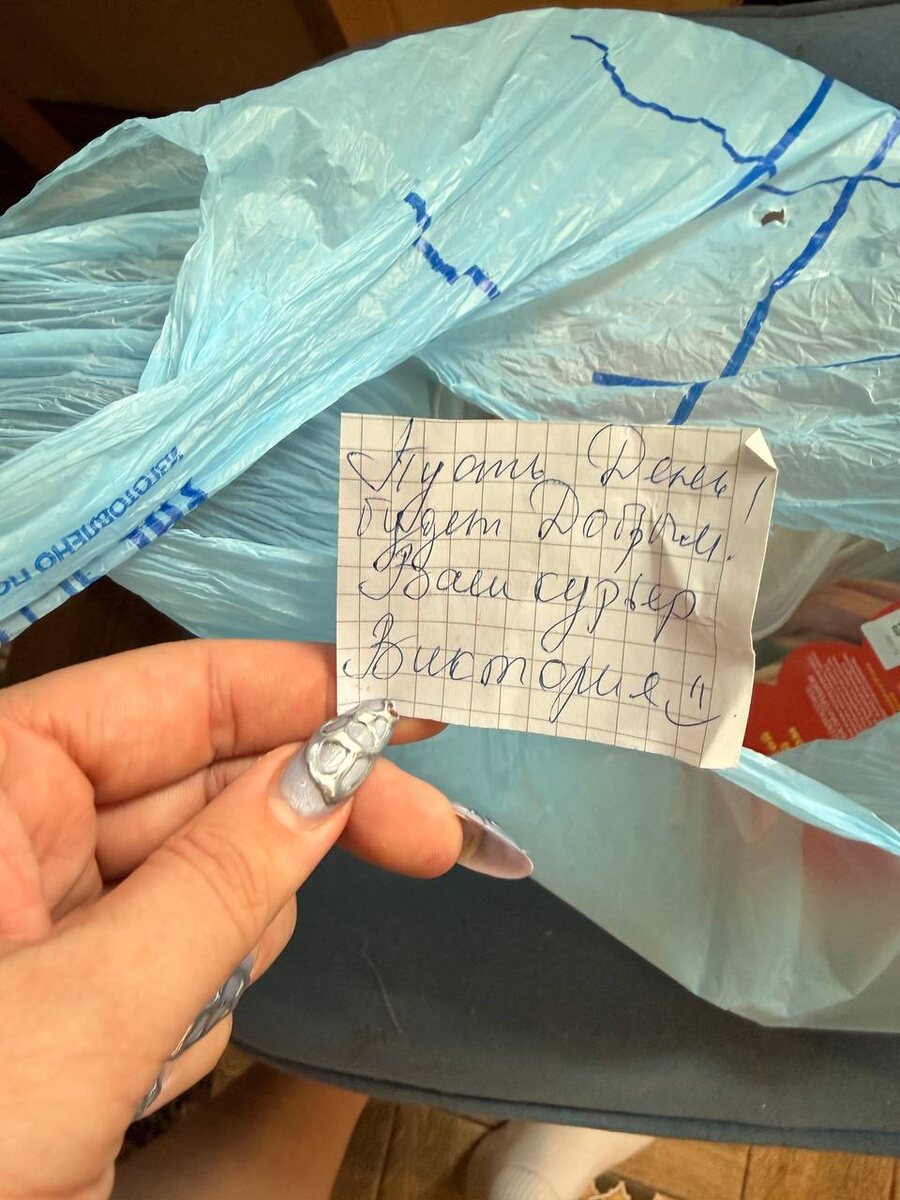 Пусть День
будет Добрым!
Ваш курьер
Виктория
ИЗГОТОВЛЕНО ПО